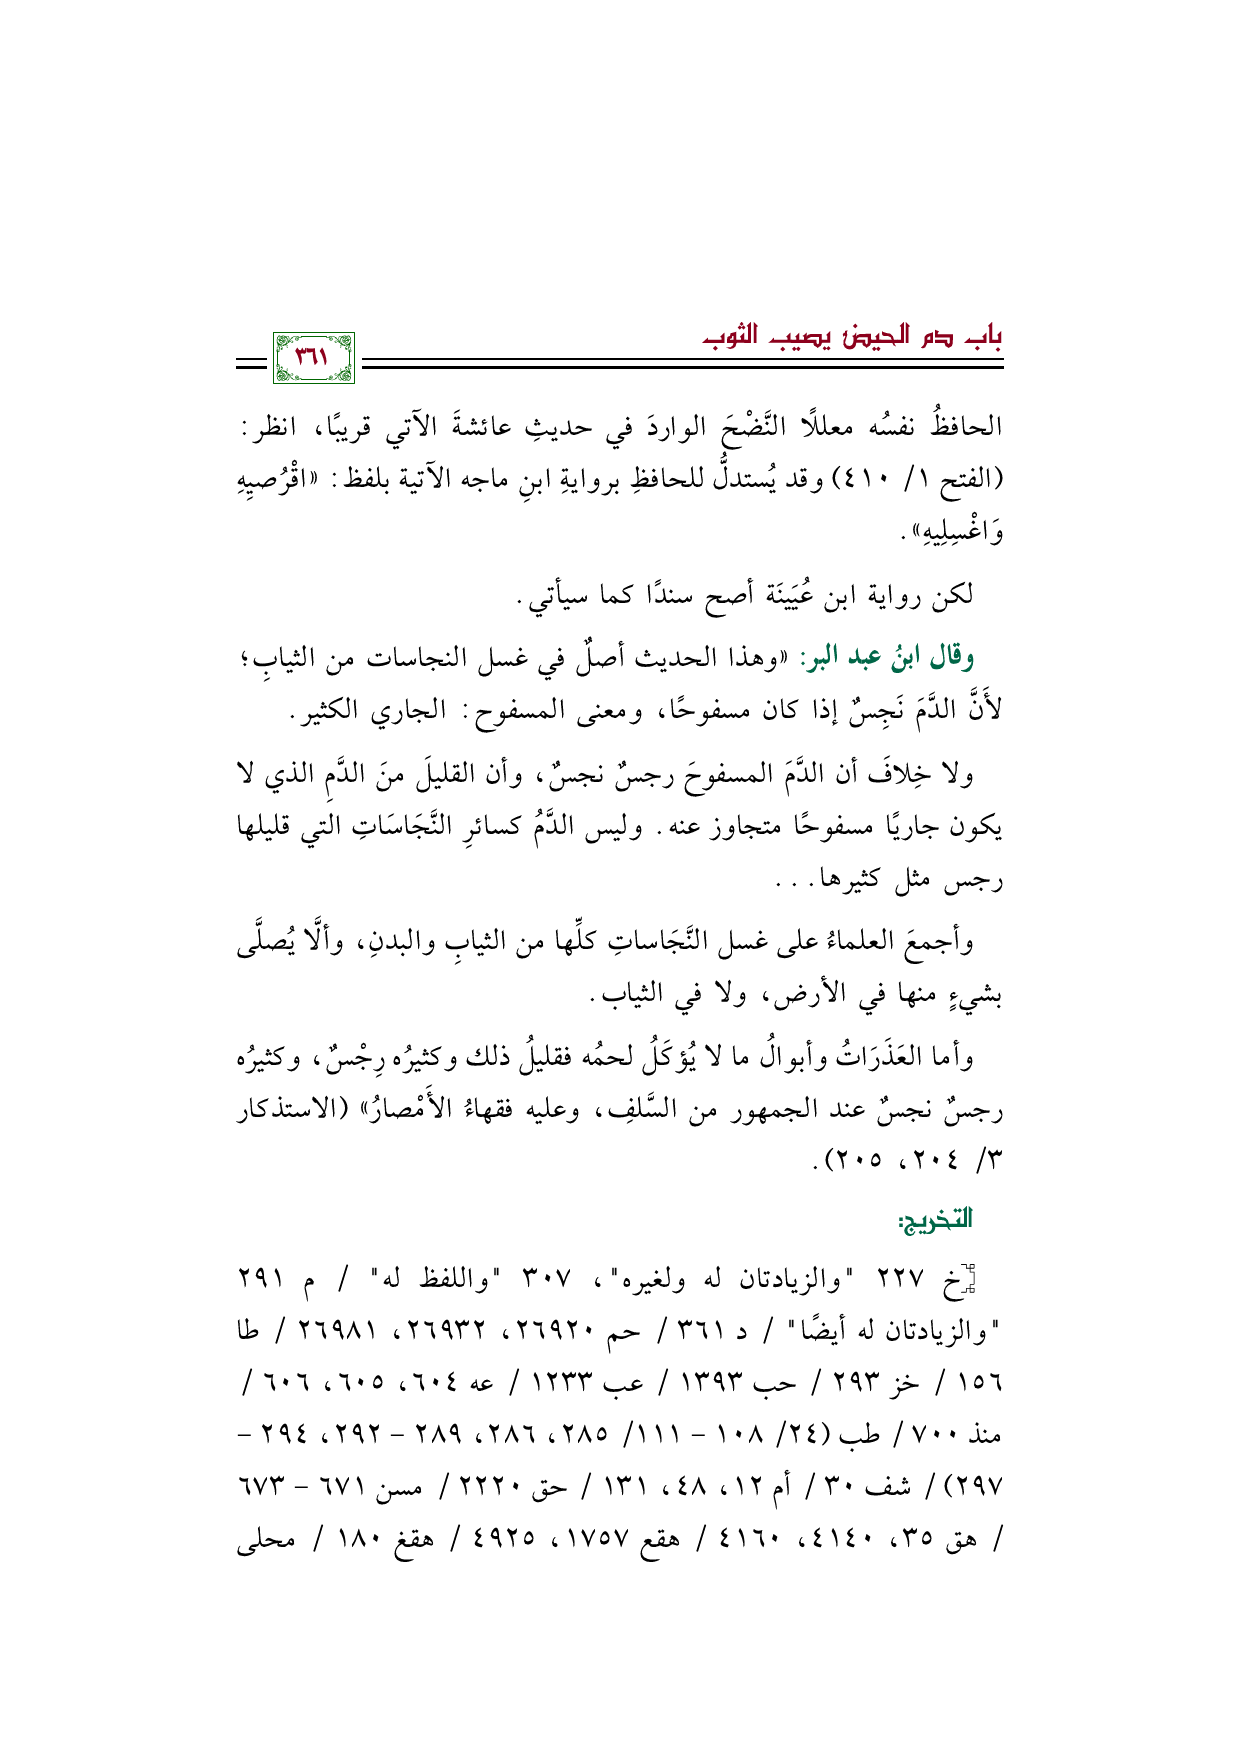 باب دم الحيض يصيب الثوب
٣٦١
الحافظُ نفسُه معللًا النَّضْحَ الواردَ في حديثِ عائشةَ الآتي قريبًا، انظر:
(الفتح ١/ ٤١٠) وقد يُستدلُّ للحافظِ بروايةِ ابنِ ماجه الآتية بلفظ: «اقْرُصِيِهِ
وَاغْسِلِيهِ».
لكن رواية ابن عُيَينَة أصح سندًا كما سيأتي.
وقال ابنُ عبد البر: «وهذا الحديث أصلٌ في غسل النجاسات من الثيابِ؛
لأَنَّ الدَّمَ نَجِسٌ إذا كان مسفوحًا، ومعنى المسفوح: الجاري الكثير.
ولا خِلافَ أن الدَّمَ المسفوحَ رجسٌ نجسٌ، وأن القليلَ منَ الدَّمِ الذي لا
يكون جاريًا مسفوحًا متجاوز عنه. وليس الدَّمُ كسائرِ النَّجَاسَاتِ التي قليلها
رجس مثل كثيرها...
وأجمعَ العلماءُ على غسل النَّجَاساتِ كلِّها من الثيابِ والبدنِ، وألَّا يُصلَّى
بشيءٍ منها في الأرض، ولا في الثياب.
وأما العَذَرَاتُ وأبوالُ ما لا يُؤكَلُ لحمُه فقليلُ ذلك وكثيرُه رِجْسٌ، وكثيرُه
رجسٌ نجسٌ عند الجمهور من السَّلفِ، وعليه فقهاءُ الأَمْصارُ» (الاستذكار
٣/ ٢٠٤، ٢٠٥).
التخريج:
خ ٢٢٧ "والزيادتان له ولغيره"، ٣٠٧ "واللفظ له" / م ٢٩١
"والزيادتان له أيضًا" / د ٣٦١ / حم ٢٦٩٢٠، ٢٦٩٣٢، ٢٦٩٨١ / طا
١٥٦ / خز ٢٩٣ / حب ١٣٩٣ / عب ١٢٣٣ / عه ٦٠٤، ٦٠٥، ٦٠٦ /
منذ ٧٠٠ / طب (٢٤/ ١٠٨ – ١١١/ ٢٨٥، ٢٨٦، ٢٨٩ – ٢٩٢، ٢٩٤ –
٢٩٧) / شف ٣٠ / أم ١٢، ٤٨، ١٣١ / حق ٢٢٢٠ / مسن ٦٧١ – ٦٧٣
/ هق ٣٥، ٤١٤٠، ٤١٦٠ / هقع ١٧٥٧، ٤٩٢٥ / هقغ ١٨٠ / محلى